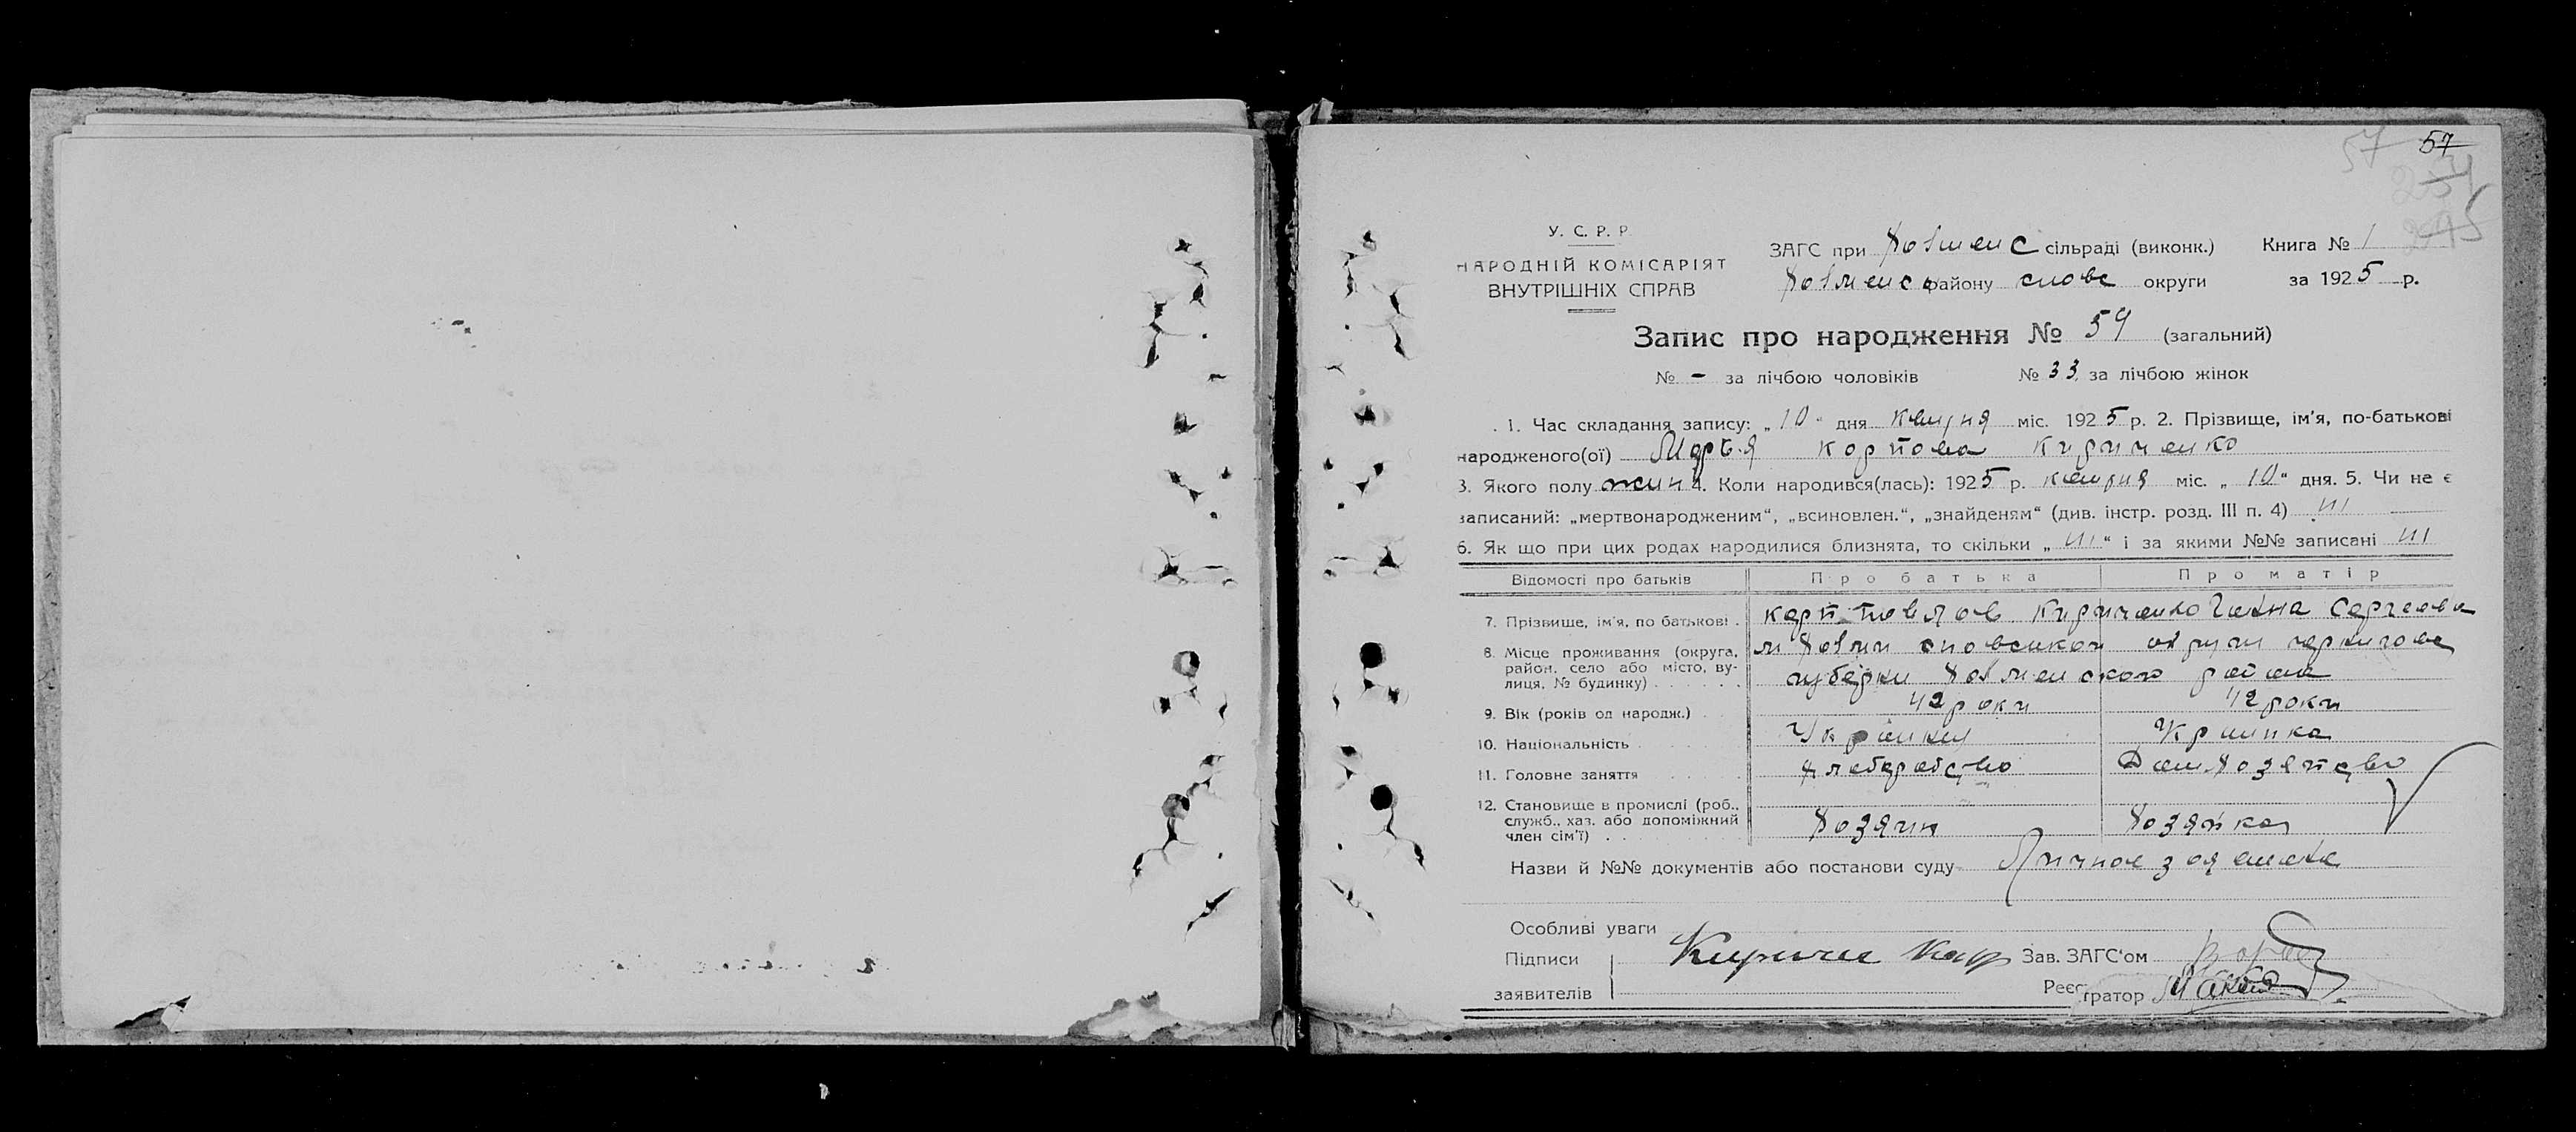 57 57
У. С. Р. Р.
НАРОДНІЙ КОМІСАРІЯТ
ВНУТРІШНІХ СПРАВ
ЗАГС при Холменс сільраді (виконк.) Книга № 1
Холменс району снове округи за 1925 р.
Запис про народження № 59 (загальний)
№ - за лічбою чоловіків № 33 за лічбою жінок
1. Час складання запису: „10“ дня міс. 1925 р. 2. Прізвище, ім'я, по-батькові
народженого(ої) Марья Карпова Кириченко
3. Якого полу жин 4. Коли народився(лась): 1925 р. міс. „10“ дня. 5. Чи не є
записаний: „мертвонародженим“, „всиновлен.“, „знайденям“ (див. інстр. розд. III п. 4) ні
6. Як що при цих родах народилися близнята, то скільки „ні“ і за якими №№ записані ні
Відомості про батьків Про батька Про матір
7. Прізвище, ім'я, по батькові Карп Павлов Кириченко Ганна Сергеева
8. Місце проживання (округа, район, село або місто, вулиця, № будинку) м Холми сновськои округи чернигове
губерни Холменского района
9. Вік (років од народж.) 42 роки 42 роки
10. Національність Украинка
11. Головне заняття хлеборобство Дом хозяйство
12. Становище в промислі (роб., служб., хаз. або допоміжний член сім'ї) хозяин хозяйка
Назви й №№ документів або постанови суду Личное заявление
Особливі уваги
Підписи Кириче Кар Зав. ЗАГС'ом
заявителів Реєстратор